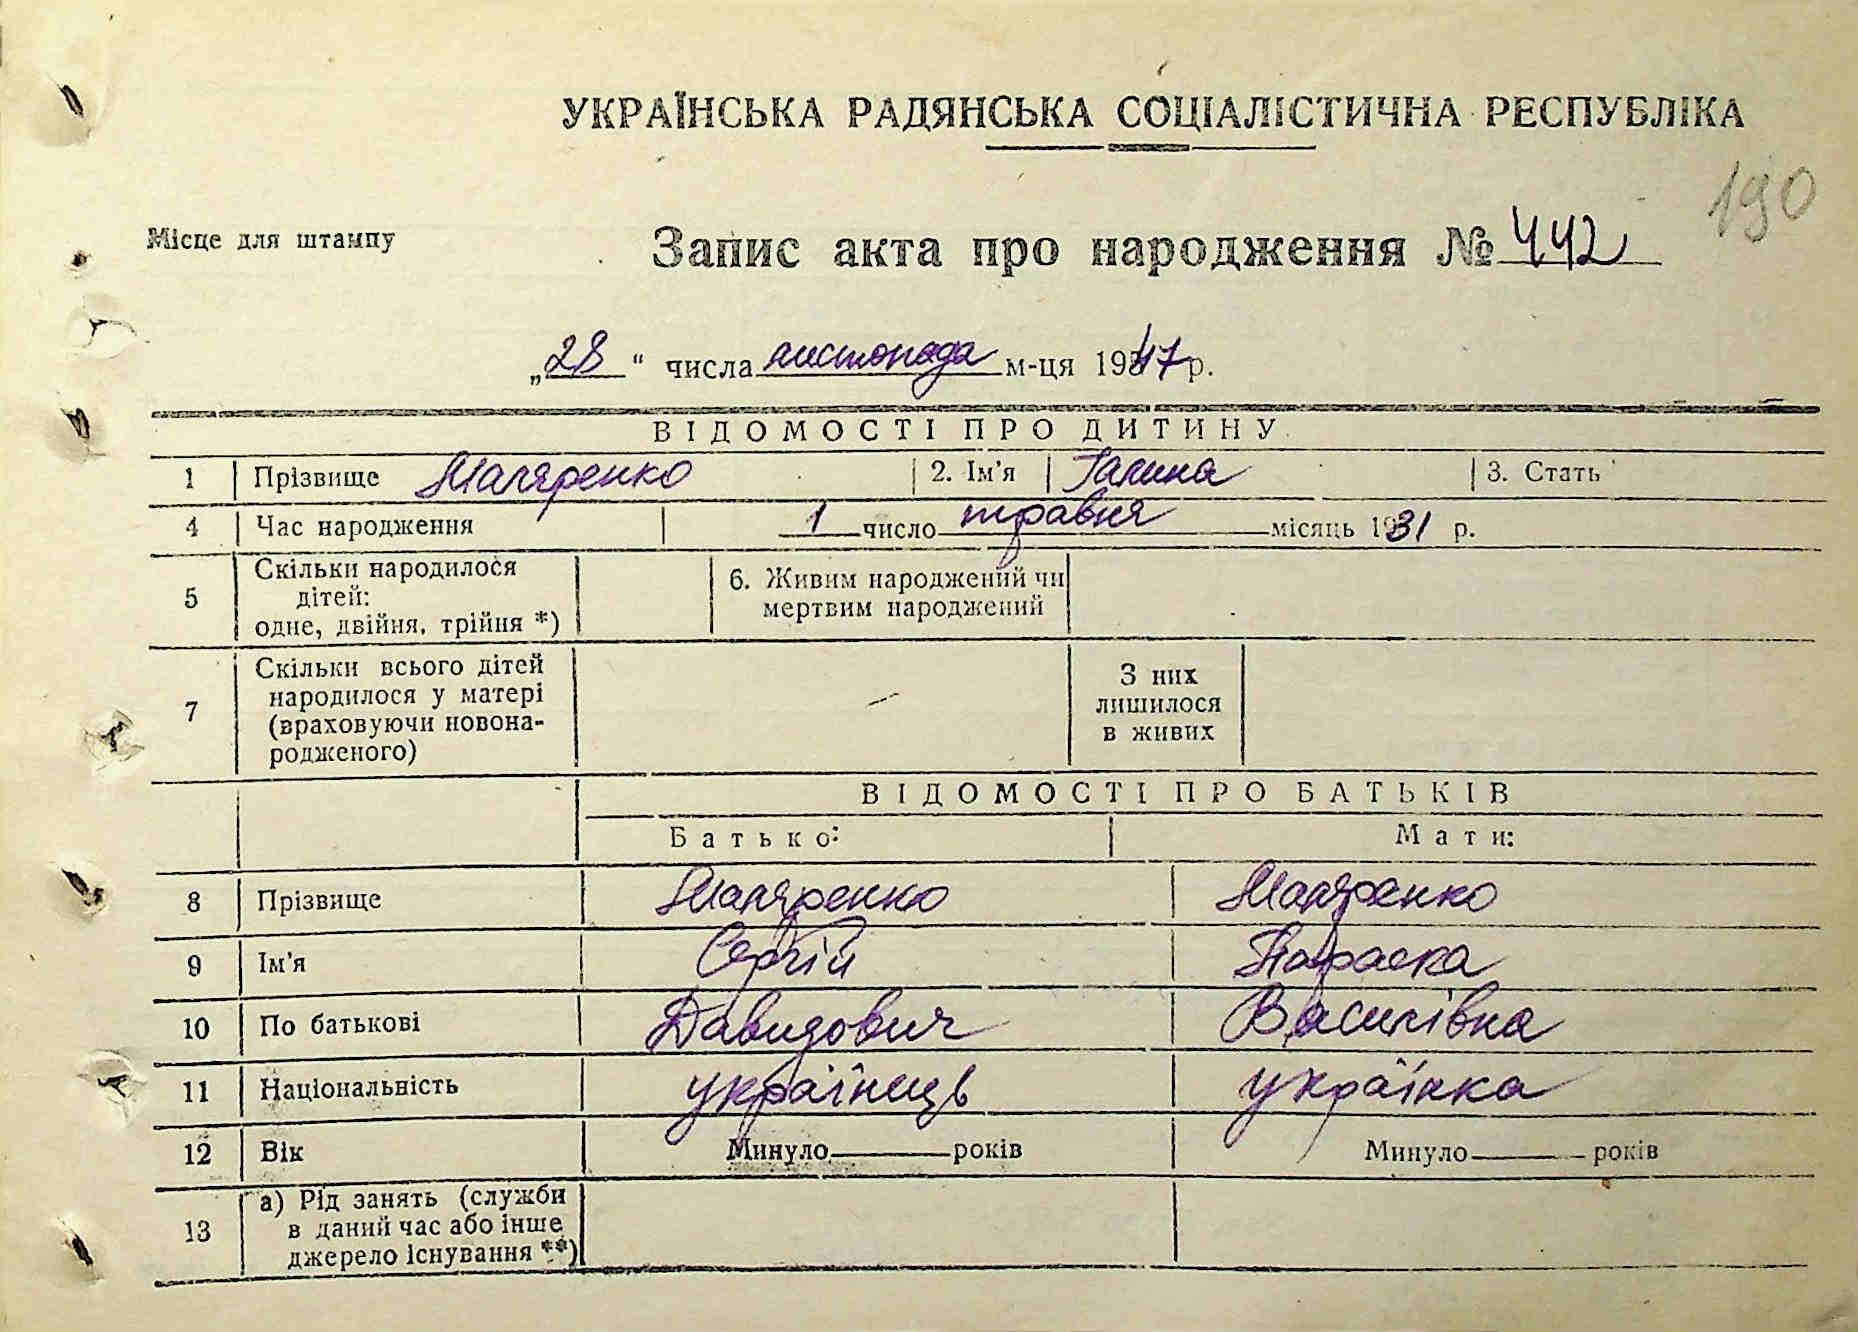 УКРАЇНСЬКА РАДЯНСЬКА СОЦІАЛІСТИЧНА РЕСПУБЛІКА
190
Місце для штампу
Запис акта про народження № 442
„28“ числа листопада м-ця 1947 р.
ВІДОМОСТІ ПРО ДИТИНУ
1 Прізвище Маляренко 2. Ім'я Галина 3. Стать
4 Час народження 1 число травня місяць 1931 р.
5 Скільки народилося дітей: одне, двійня, трійня *) 6. Живим народжений чи мертвим народжений
7 Скільки всього дітей народилося у матері (враховуючи новона-родженого) — З них лишилося в живих
ВІДОМОСТІ ПРО БАТЬКІВ
Батько: Мати:
8 Прізвище Маляренко Маляренко
9 Ім'я Сергій Параска
10 По батькові Давидович Василівна
11 Національність українець українка
12 Вік Минуло років Минуло років
13 а) Рід занять (служби в даний час або інше джерело існування **)